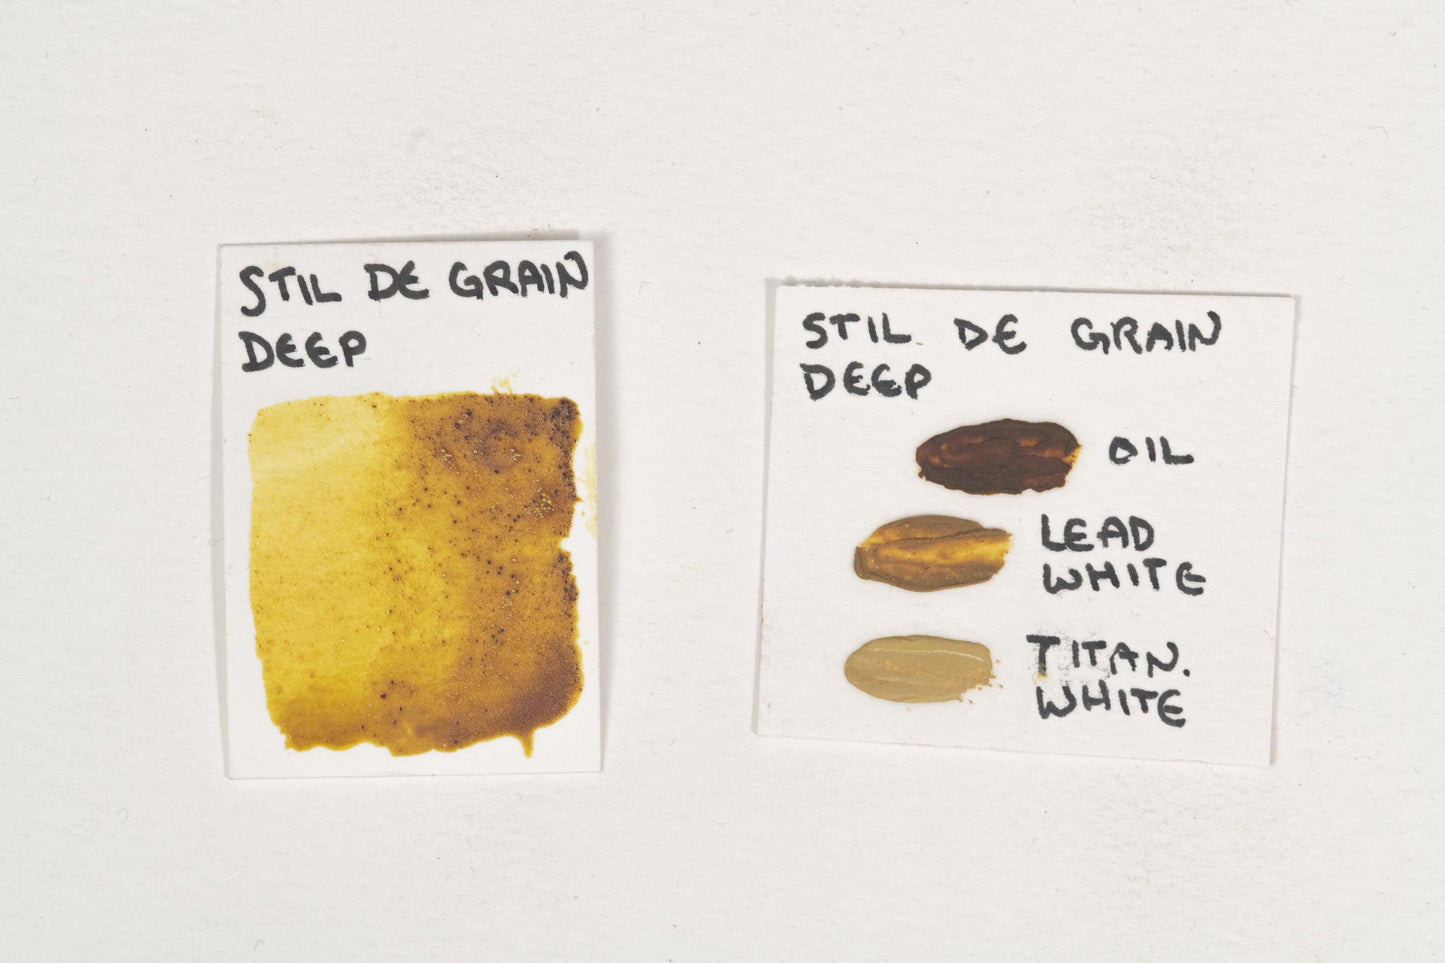 STIL DE GRAIN
DEEP
STIL DE GRAIN
DEEP
OIL
LEAD
WHITE
TITAN.
WHITE